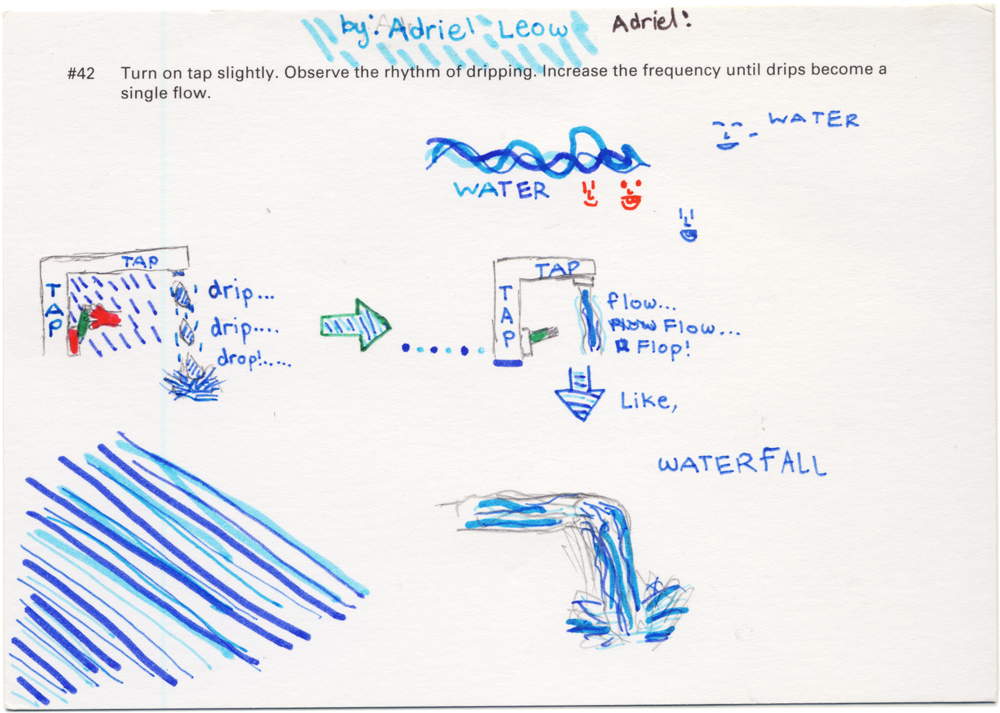 by: Adriel Leow Adriel:
#42 Turn on tap slightly. Observe the rhythm of dripping. Increase the frequency until drips become a
single flow.
WATER
WATER
TAP
TAP
drip...
drip....
drop!.....
TAP
TAP
flow...
Flow...
Flop!
Like,
WATERFALL